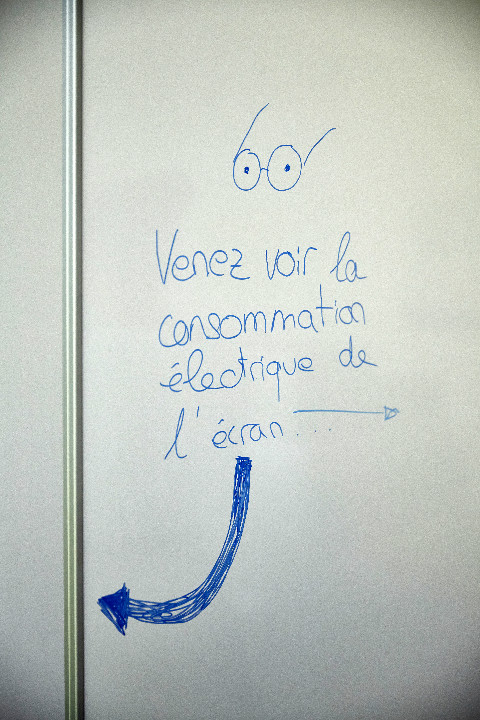 Venez voir la
consommation
électrique de
l'écran...